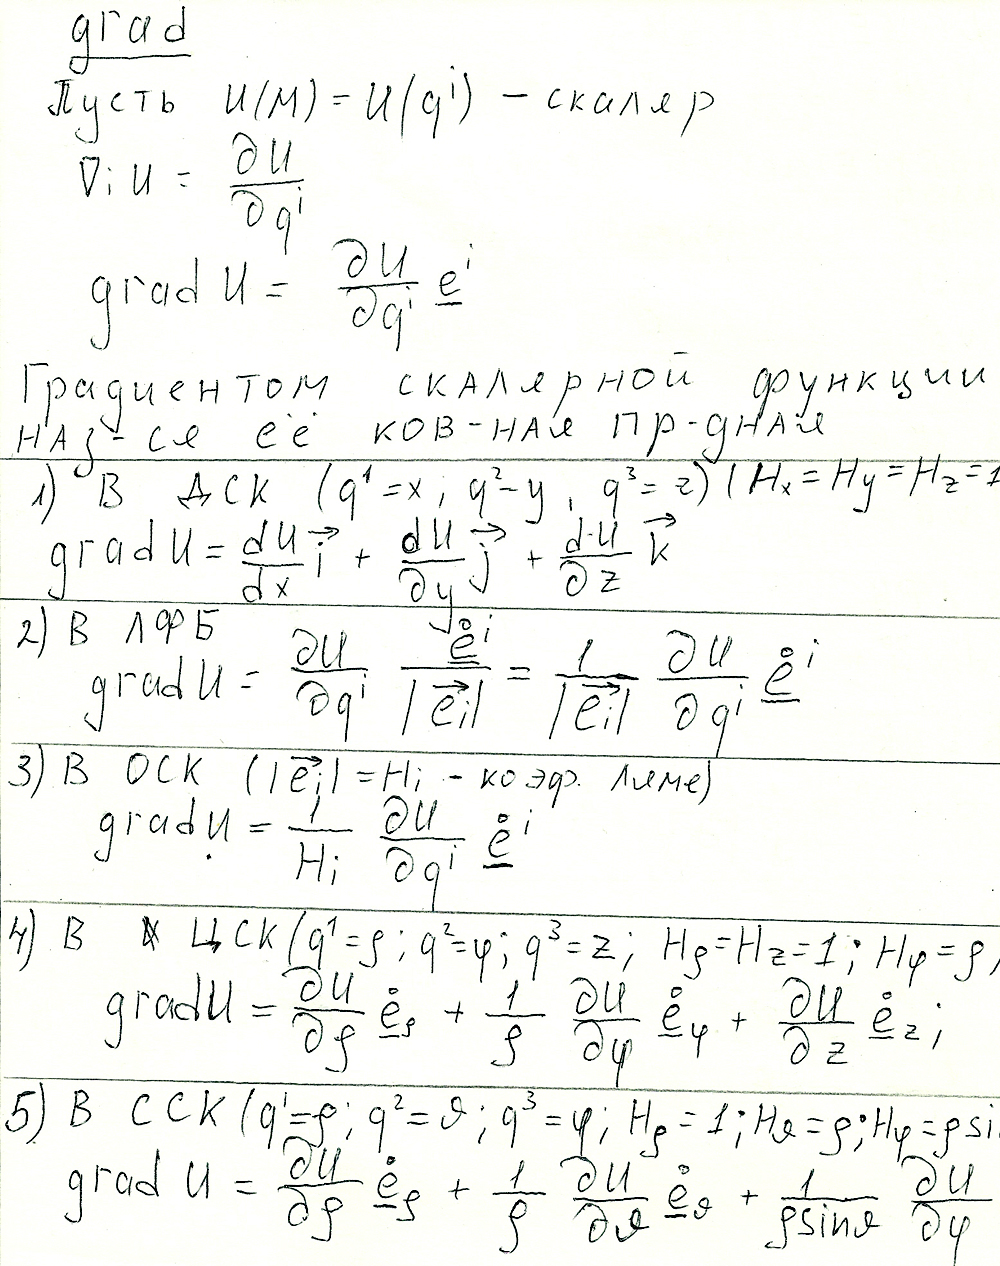 grad
Пусть U(M) = U(qⁱ) – скаляр
∇ᵢ U = ∂U/∂qⁱ
grad U = ∂U/∂qⁱ e̲ⁱ
Градиентом скалярной функции
наз-ся её ков-ная пр-дная
1) В ДСК (q¹=x; q²-y, q³=z) (Hx=Hy=Hz=1
grad U = dU/dx i⃗ + dU/∂y j⃗ + dU/∂z k⃗
2) В ЛФБ
grad U = ∂U/∂qⁱ e̲̊ⁱ/|e⃗ᵢ| = 1/|e⃗ᵢ| ∂U/∂qⁱ e̲̊ⁱ
3) В ОСК (|e⃗ᵢ| = Hᵢ - коэф. Ляме)
grad U = 1/Hᵢ ∂U/∂qⁱ e̲̊ⁱ
4) В ЦСК (q¹=ρ; q²=φ; q³=z; Hρ=Hz=1; Hφ=ρ,
grad U = ∂U/∂ρ e̲̊ρ + 1/ρ ∂U/∂φ e̲̊φ + ∂U/∂z e̲̊z;
5) В ССК (q¹=ρ; q²=ϑ; q³=φ; Hρ=1; Hϑ=ρ; Hφ=ρsi
grad U = ∂U/∂ρ e̲̊ρ + 1/ρ ∂U/∂ϑ e̲̊ϑ + 1/ρsinϑ ∂U/∂φ